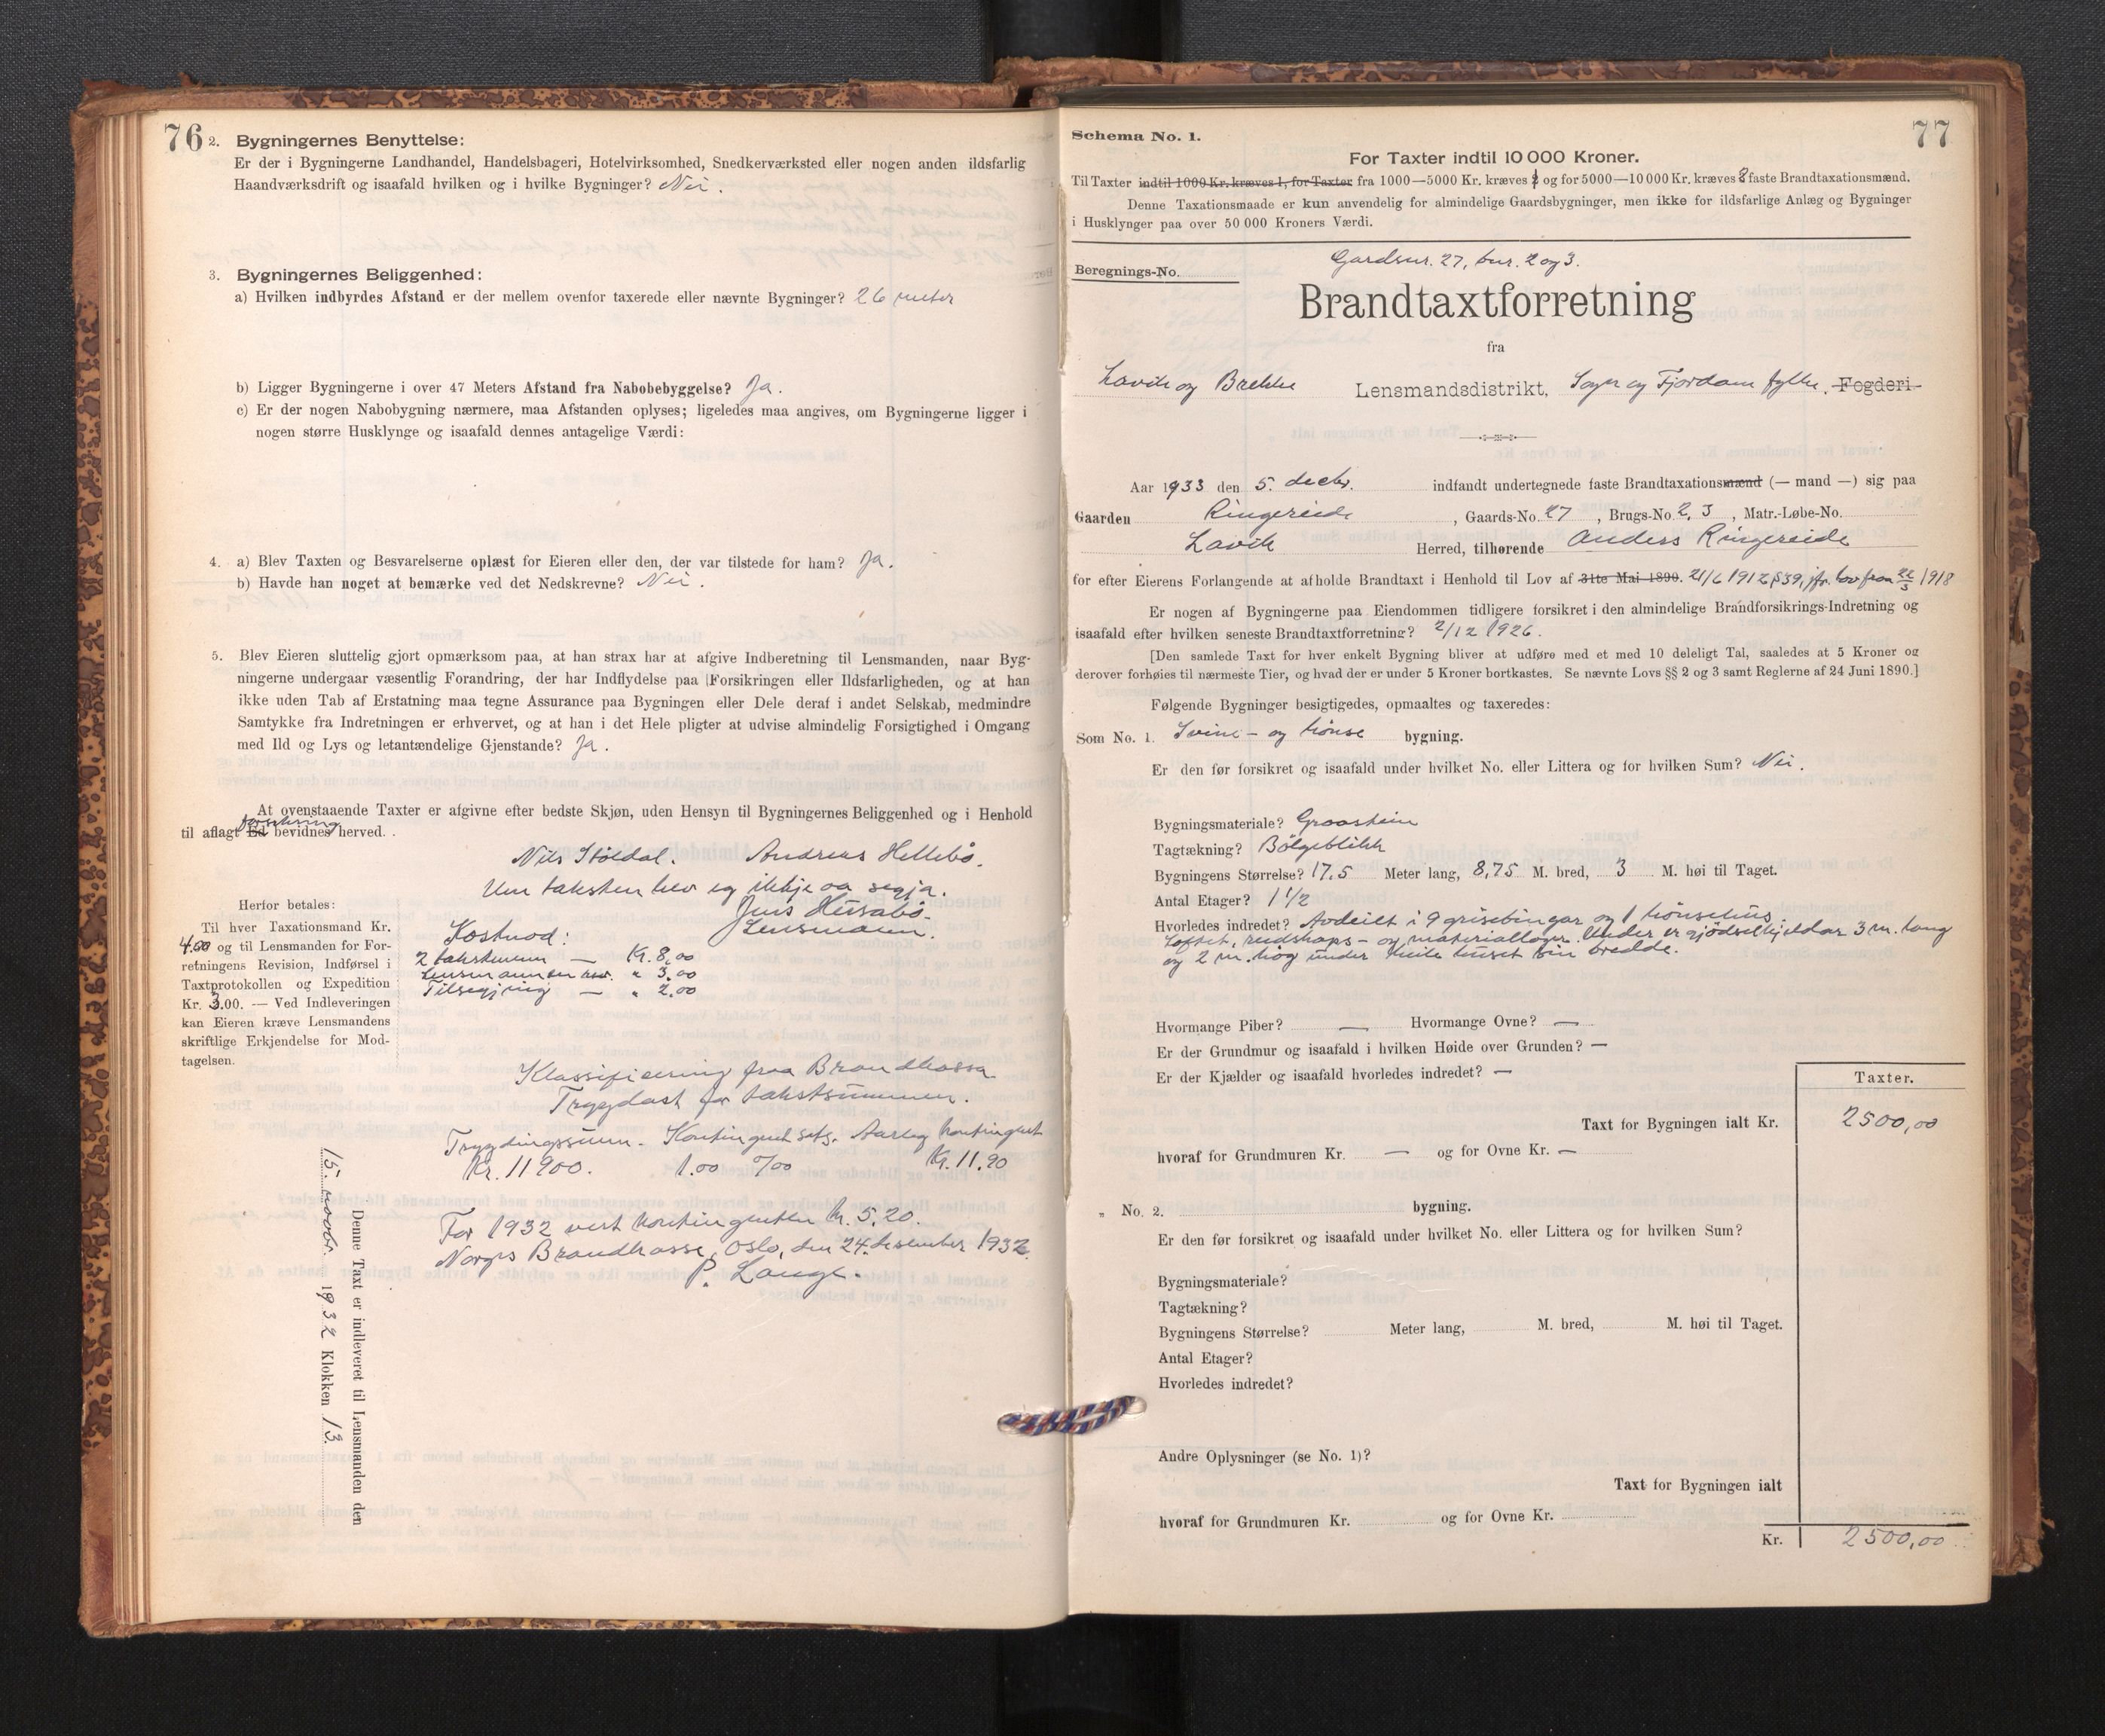 76
2. Bygningernes Benyttelse:
Er der i Bygningerne Landhandel, Handelsbageri, Hotelvirksomhed, Snedkerværksted eller nogen anden ildsfarlig
Haandværksdrift og isaafald hvilken og i hvilke Bygninger? Nei.
3. Bygningernes Beliggenhed:
a) Hvilken indbyrdes Afstand er der mellem ovenfor taxerede eller nævnte Bygninger? 26 meter
b) Ligger Bygningerne i over 47 Meters Afstand fra Nabobebyggelse? Ja.
c) Er der nogen Nabobygning nærmere, maa Afstanden oplyses; ligeledes maa angives, om Bygningerne ligger i
nogen større Husklynge og isaafald dennes antagelige Værdi:
4. a) Blev Taxten og Besvarelserne oplæst for Eieren eller den, der var tilstede for ham? Ja.
b) Havde han noget at bemærke ved det Nedskrevne? Nei.
5. Blev Eieren sluttelig gjort opmærksom paa, at han strax har at afgive Indberetning til Lensmanden, naar Byg-
ningerne undergaar væsentlig Forandring, der har Indflydelse paa Forsikringen eller Ildsfarligheden, og at han
ikke uden Tab af Erstatning maa tegne Assurance paa Bygningen eller Dele deraf i andet Selskab, medmindre
Samtykke fra Indretningen er erhvervet, og at han i det Hele pligter at udvise almindelig Forsigtighed i Omgang
med Ild og Lys og letantændelige Gjenstande? Ja.
At ovenstaaende Taxter er afgivne efter bedste Skjøn, uden Hensyn til Bygningernes Beliggenhed og i Henhold
forsikring
til aflagt Ed bevidnes herved.
Nils Støldal. Andreas Hellebø.
Um taksten hev eg ikkje aa segja.
Jens Husabø.
Lensmann.
Herfor betales:
Til hver Taxationsmand Kr.
4.00 og til Lensmanden for For-
retningens Revision, Indførsel i
Taxtprotokollen og Expedition
Kr. 3.00. — Ved Indleveringen
kan Eieren kræve Lensmandens
skriftlige Erkjendelse for Mod-
tagelsen.
Kostnod:
2 takstmenn — Kr. 8,00
Lensmannen " 3.00
Tilsegjing — " 2.00
Klassifisering fraa Brandkassa
Trygdast for takstsummen.
Trygdingssum. Kontingent sats. Aarleg kontingent
Kr. 11900. 1.00 ‰ Kr. 11.90
For 1932 vert kontingenten kr. 5.20.
Norges Brandkasse, Oslo, den 24. desember 1932.
P. Lange.
Denne Taxt er indleveret til Lensmanden den
15. novbr. 1932 Klokken 13.
77
Schema No. 1.
For Taxter indtil 10 000 Kroner.
Til Taxter indtil 1000 Kr. kræves 1, for Taxter fra 1000—5000 Kr. kræves 2 og for 5000—10 000 Kr. kræves faste Brandtaxationsmænd.
Denne Taxationsmaade er kun anvendelig for almindelige Gaardsbygninger, men ikke for ildsfarlige Anlæg og Bygninger
i Husklynger paa over 50 000 Kroners Værdi.
Gardsnr. 27, bnr. 2 og 3.
Beregnings-No.
Brandtaxtforretning
fra
Lavik og Brekke Lensmandsdistrikt, Sogn og Fjordane fylke. Fogderi.
Aar 1933 den 5. decbr. indfandt undertegnede faste Brandtaxationsmænd (— mand —) sig paa
Gaarden Ringereide, Gaards-No. 27, Brugs-No. 2, 3, Matr.-Løbe-No.
Lavik Herred, tilhørende Anders Ringereide
for efter Eierens Forlangende at afholde Brandtaxt i Henhold til Lov af 31te Mai 1890. 21/6 1912 § 39, jfr. lov fraa 22/3 1918
Er nogen af Bygningerne paa Eiendommen tidligere forsikret i den almindelige Brandforsikrings-Indretning og
isaafald efter hvilken seneste Brandtaxtforretning? 2/12 1926.
[Den samlede Taxt for hver enkelt Bygning bliver at udføre med et med 10 deleligt Tal, saaledes at 5 Kroner og
derover forhøies til nærmeste Tier, og hvad der er under 5 Kroner bortkastes. Se nævnte Lovs §§ 2 og 3 samt Reglerne af 24 Juni 1890.]
Følgende Bygninger besigtigedes, opmaaltes og taxeredes:
Som No. 1. Svine- og hønse bygning.
Er den før forsikret og isaafald under hvilket No. eller Littera og for hvilken Sum? Nei.
Bygningsmateriale? Graastein
Tagtækning? Bølgeblikk
Bygningens Størrelse? 17,5 Meter lang, 8,75 M. bred, 3 M. høi til Taget.
Antal Etager? 1 1/2
Hvorledes indredet? Avdeilt i 9 grisebingar og 1 hønsehus.
Loftet, reidskaps- og materiallager. Under er gjødselkjeldar 3 m. lang
og 2 m. høg under heile huset sin bredde.
Hvormange Piber? — Hvormange Ovne? —
Er der Grundmur og isaafald i hvilken Høide over Grunden? —
Er der Kjælder og isaafald hvorledes indredet? —
Taxter.
Taxt for Bygningen ialt Kr. 2500,00
hvoraf for Grundmuren Kr. — og for Ovne Kr. —
" No. 2. bygning.
Er den før forsikret og isaafald under hvilket No. eller Littera og for hvilken Sum?
Bygningsmateriale?
Tagtækning?
Bygningens Størrelse? Meter lang, M. bred, M. høi til Taget.
Antal Etager?
Hvorledes indredet?
Andre Oplysninger (se No. 1)?
Taxt for Bygningen ialt
hvoraf for Grundmuren Kr. og for Ovne Kr.
Kr. 2500,00